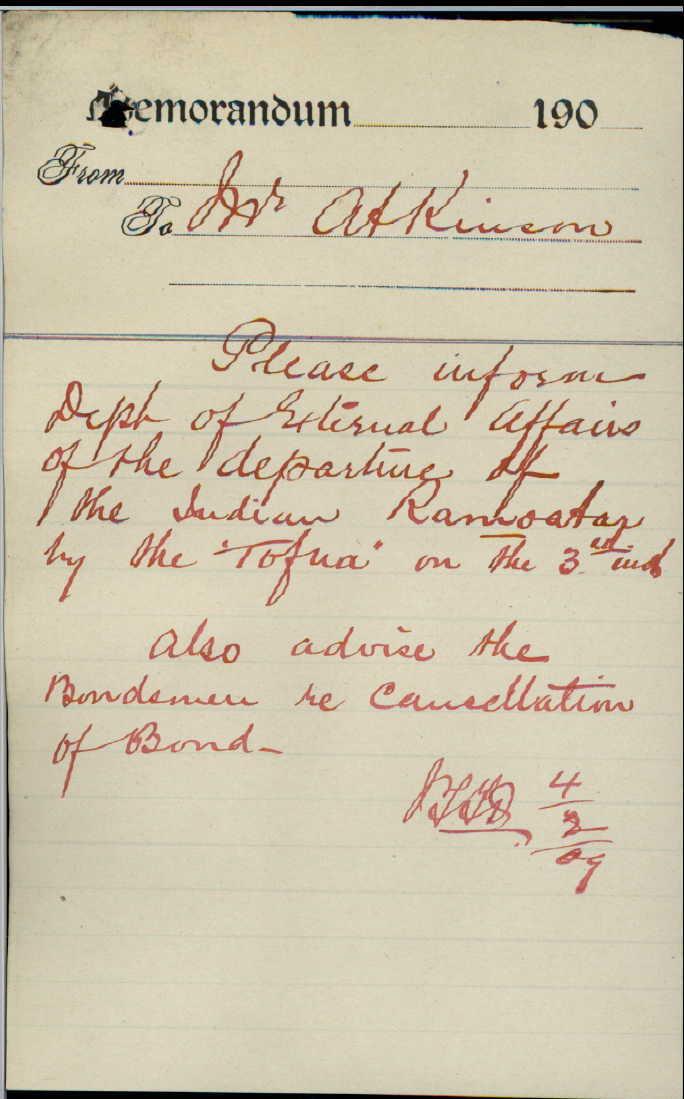 Memorandum 190
From
To Mr Atkinson
Please inform
Dept of External Affairs
of the departure of
the Indian Ramoatar
by the "Tofua" on the 3rd inst
Also advise the
Bondsmen re Cancellation
of Bond -
4
2
09